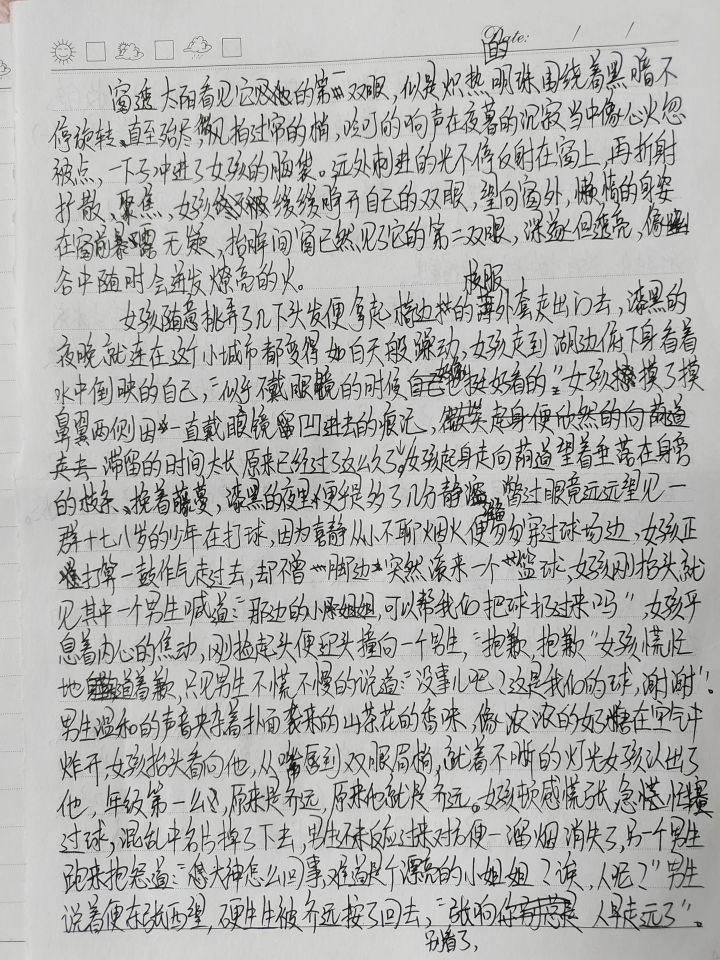 Date: / /
的
窗透太阳看见它的第一双眼,似是炽热明珠围绕着黑暗不
停旋转、直至殆尽,微风拍过帘的梢,吱叮的响声在夜暮的沉寂当中像心火忽
被点,一下子冲进了女孩的脑袋。远处刺进的光不停反射在窗上,再折射
扩散、聚焦,女孩缓缓睁开自己的双眼,望向窗外,懒惰的身姿
在窗前暴露无疑,抬眸间窗已然见了它的第二双眼,深邃但透亮,像
谷中随时会迸发燎亮的火。
校服
女孩随意挑弄了几下头发便拿起椅边挂的外套走出门去,漆黑的
夜晚就连在这个小城市都变得如白天般躁动,女孩走到湖边俯下身看着
水中倒映的自己,“似乎不戴眼镜的时候自己也挺好看的”女孩摸了摸
鼻翼两侧因一直戴眼镜留凹进去的痕迹,微笑起身便欣然的向荫道
走去 滞留的时间太长 原来已经过了这么久了。女孩起身走向荫道望着垂落在身旁
的枝条、挽着藤蔓,漆黑的夜里便平多了几分静谧 瞥过眼竟远远望见一
群十七八岁的少年在打球,因为喜静从小不聊烟火便匆匆穿过球场边,女孩正
打算一鼓作气走过去,却不曾脚边突然滚来一个篮球,女孩刚抬头就
见其中一个男生喊道:“那边的小姐姐,可以帮我们把球扔过来吗”,女孩平
息着内心的焦动,刚捡起头便迎头撞向一个男生,“抱歉,抱歉”女孩慌忙
地道着歉,只见男生不慌不慢的说道:“没事儿吧?这是我们的球,谢谢”.
男生温和的声音夹杂着扑面袭来的山茶花的香味,像浓浓的奶糖在空气中
炸开,女孩抬头看向他,从嘴唇到双眼眉梢,就着不晰的灯光女孩认出了
他,年级第一么,原来是齐远,原来他就是齐远。女孩顿感慌张,急慌忙
过球,混乱中名片掉了下去,男生还未反应过来对方便一溜烟消失了,另一个男生
跑来抱怨道:“您大神怎么回事,难道是个漂亮的小姐姐?诶,人呢?”男生
说着便东张西望,硬生生被齐远按了回去,“张响你 人早走远了”。
别看了,